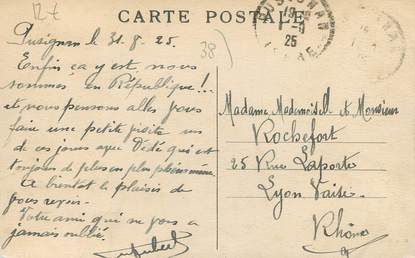 12 €
CARTE POSTALE
PUSIGNAN
25
38)
Pusignan le 31-8-25.
Enfin ça y est nous
sommes en République!!
et nous pensons aller vous
faire une petite visite un
de ces jours avec Dédé qui est
toujours de plus en plus
A bientôt le plaisir de
vous revoir.
Votre ami qui ne vous a
jamais oublié.
Madame Mademoiselle et Monsieur
Rochefort
25 Rue Laporte
Lyon Vaise
Rhône